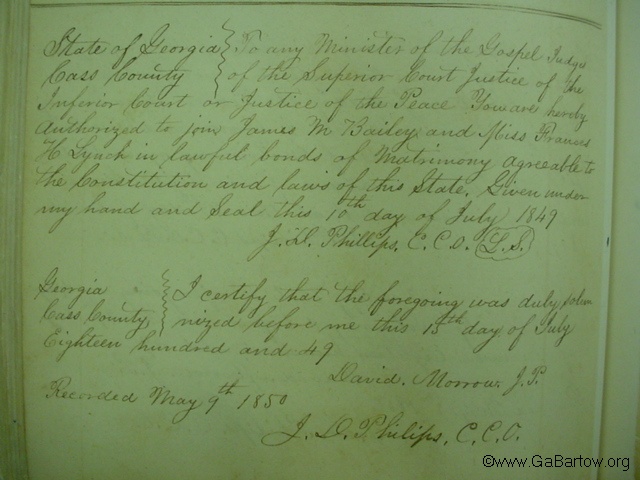 State of Georgia } To any Minister of the Gospel Judge
Cass County } of the Superior Court Justice of the
Inferior Court or Justice of the Peace You are hereby
Authorized to join James M Bailey and Miss Frances
H Lynch in lawful bonds of Matrimony agreeable to
the Constitution and laws of this State. Given under
my hand and Seal this 10th day of July 1849
J. D. Phillips, C. C. O. (L. S.)
Georgia } I certify that the foregoing was duly solem
Cass County } nized before me this 15th day of July
Eighteen hundred and 49
David. Morrow. J. P.
Recorded May 9th 1850
J. D. Philips, C. C. O.
©www.GaBartow.org